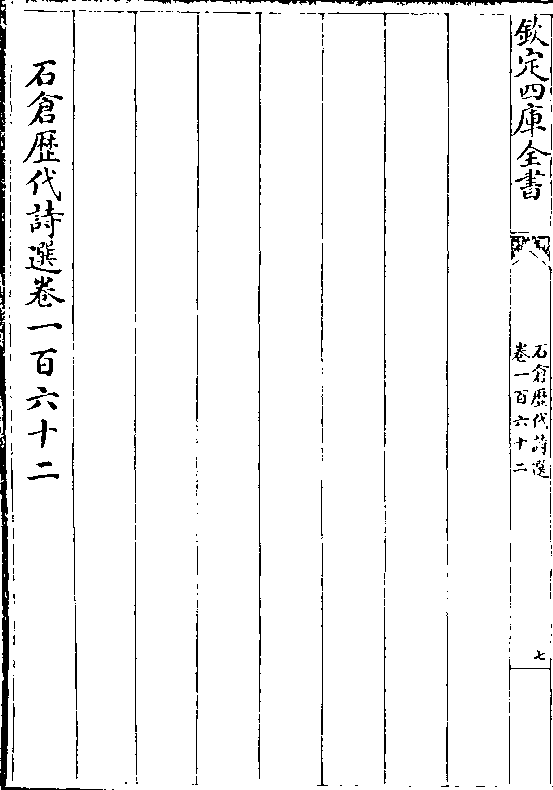 欽定四庫全書
石倉歴代詩選
卷一百六十二
七
石倉歴代詩選卷一百六十二